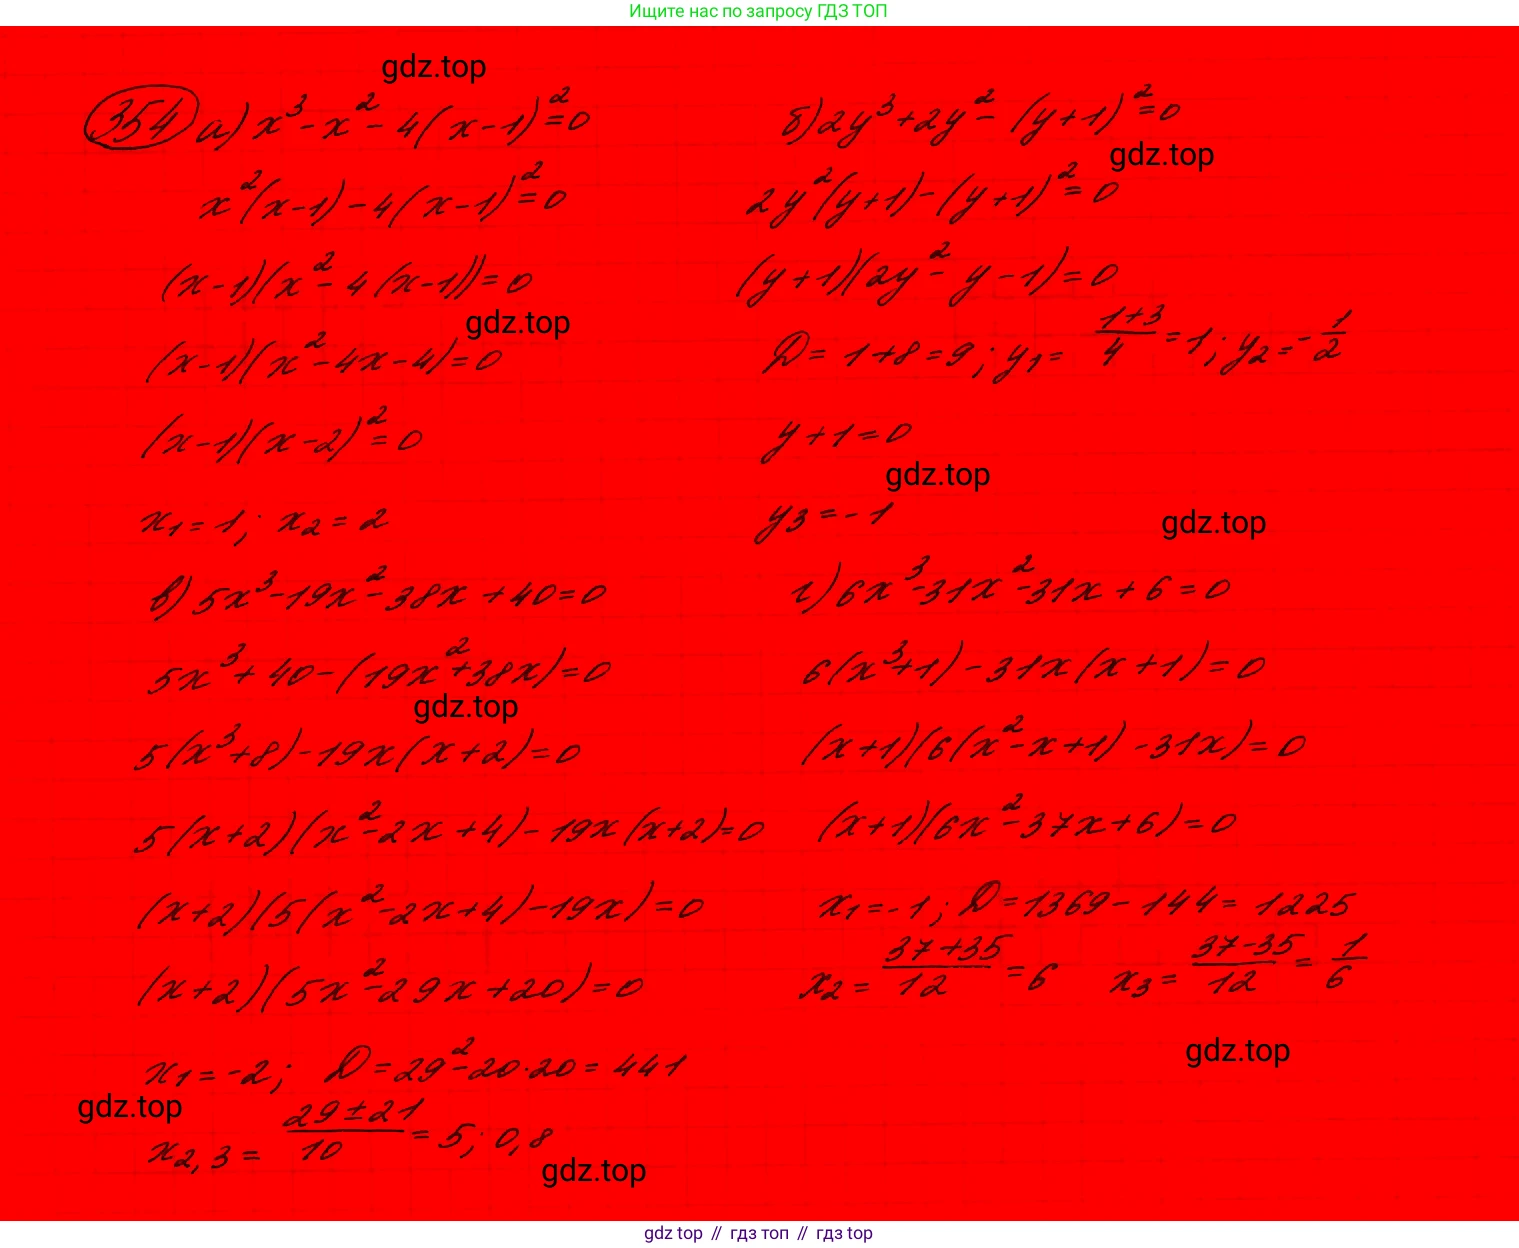 Ищите нас по запросу ГДЗ ТОП
gdz.top
354 а) x³ - x² - 4(x-1)² = 0
x²(x-1) - 4(x-1)² = 0
(x-1)(x² - 4(x-1)) = 0
gdz.top
(x-1)(x² - 4x - 4) = 0
(x-1)(x-2)² = 0
x₁ = 1; x₂ = 2
б) 2y³ + 2y² - (y+1)² = 0
gdz.top
2y²(y+1) - (y+1)² = 0
(y+1)(2y² - y - 1) = 0
D = 1+8 = 9; y₁ = (1+3)/4 = 1; y₂ = -1/2
y+1 = 0
gdz.top
y₃ = -1
gdz.top
в) 5x³ - 19x² - 38x + 40 = 0
5x³ + 40 - (19x² + 38x) = 0
gdz.top
5(x³+8) - 19x(x+2) = 0
5(x+2)(x² - 2x + 4) - 19x(x+2) = 0
(x+2)(5(x² - 2x + 4) - 19x) = 0
(x+2)(5x² - 29x + 20) = 0
x₁ = -2; D = 29² - 20·20 = 441
gdz.top
x₂,₃ = (29±21)/10 = 5; 0,8
gdz.top
г) 6x³ - 31x² - 31x + 6 = 0
6(x³+1) - 31x(x+1) = 0
(x+1)(6(x² - x + 1) - 31x) = 0
(x+1)(6x² - 37x + 6) = 0
x₁ = -1; D = 1369 - 144 = 1225
x₂ = (37+35)/12 = 6 x₃ = (37-35)/12 = 1/6
gdz.top
gdz top // гдз топ // гдз top